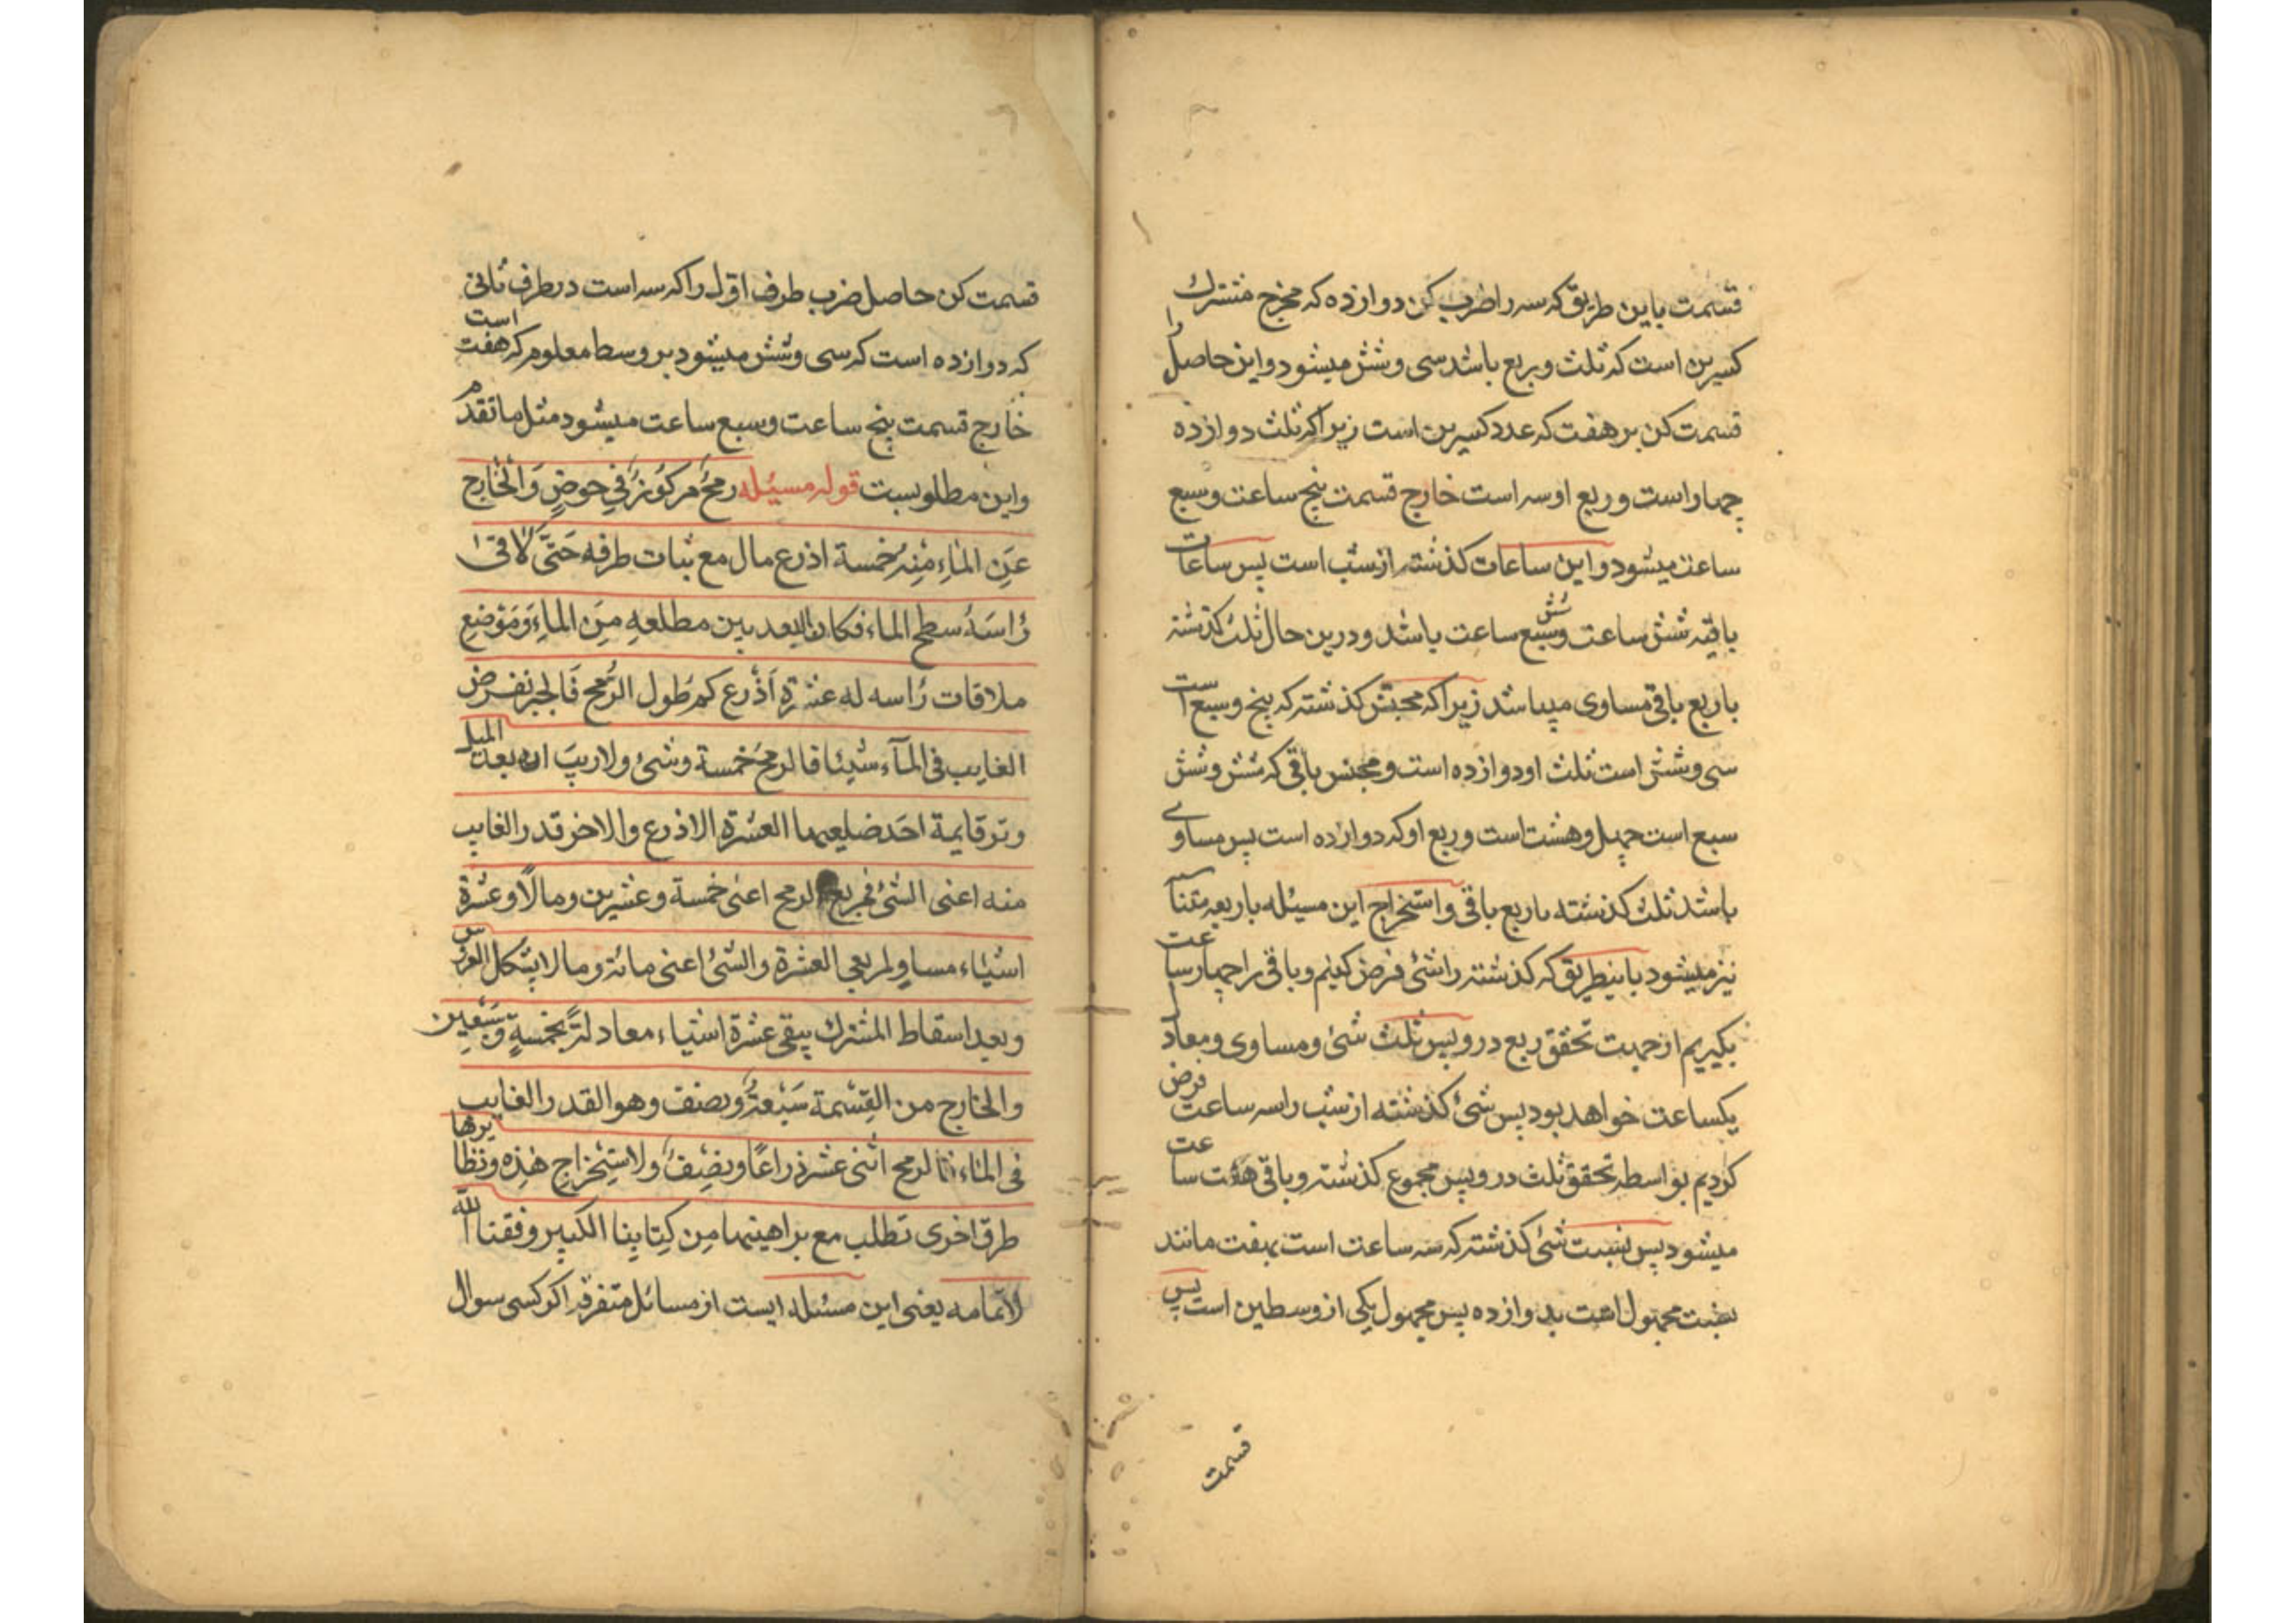 قسمت باین طریق که سه را ضرب کن دوازده که مخرج مشترك
کسرین است که ثلث وربع باشد سی وشش میشود واین حاصل را
قسمت کن بر هفت که عدد کسرین است زیرا که ثلث دوازده
چهار است وربع او سه است خارج قسمت پنج ساعت وسبع
ساعت میشود واین ساعات کذشته از شب است پس ساعات
باقیه شش ساعت وشش سبع ساعت باشد ودرین حال ثلث کذشته
با ربع باقی مساوی میباشد زیرا که مجنس کذشته که پنج وسبع است
سی وشش است ثلث او دوازده است ومجنس باقی که شش وشش
سبع است چهل وهشت است وربع او که دوازده است پس مساوی
باشد ثلث کذشته با ربع باقی واستخراج این مسئله باربعه متناسبه
نیز میشود باینطریق که کذشته را شئ فرض کنیم وباقی را چهار ساعت
بکیریم از جهت تحقق ربع درو پس ثلث شئ ومساوی ومعادل
یکساعت خواهد بود پس شئ کذشته از شب را سه ساعت فرض
کردیم بواسطه تحقق ثلث درو پس مجموع کذشته وباقی هفت ساعت
میشود پس نسبت شئ کذشته که سه ساعت است بهفت مانند
نسبت مجهول است بدوازده پس مجهول یکی از وسطین است پس
قسمت
قسمت کن حاصل ضرب طرف اول را که سه است در طرف ثانی
که دوازده است که سی وشش میشود بر وسط معلوم که هفت است
خارج قسمت پنج ساعت وسبع ساعت میشود مثل ما تقدم
واین مطلوبست قوله مسئله رمح مرکوز في حوض والخارج
عن الماء منه خمسة اذرع مال مع ثبات طرفه حتی لاقی
رأسه سطح الماء فکان البعد بین مطلعه من الماء وموضع
ملاقات رأسه له عشرة اذرع کم طول الرمح فالجبر نفرض
الغایب فی الماء شیئا فالرمح خمسة وشئ ولا ریب ان بعد المیل
وتر قایمة احد ضلعیها العشرة الاذرع والاخر قدر الغایب
منه اعنی الشئ فمربع الرمح اعنی خمسة وعشرین ومالا وعشرة
اشیاء مساو لمربعی العشرة والشئ اعنی مائة ومالا بشکل العروس
وبعد اسقاط المشترك یبقی عشرة اشیاء معادلة بخمسة وسبعین
والخارج من القسمة سبعة ونصف وهو القدر الغایب
فی الماء فالرمح اثنی عشر ذراعا ونصف ولاستخراج هذه ونظایرها
طرق اخری تطلب مع براهینها من کتابنا الکبیر وفقنا الله
لاتمامه یعنی این مسئله ایست از مسائل متفرقه اکر کسی سوال